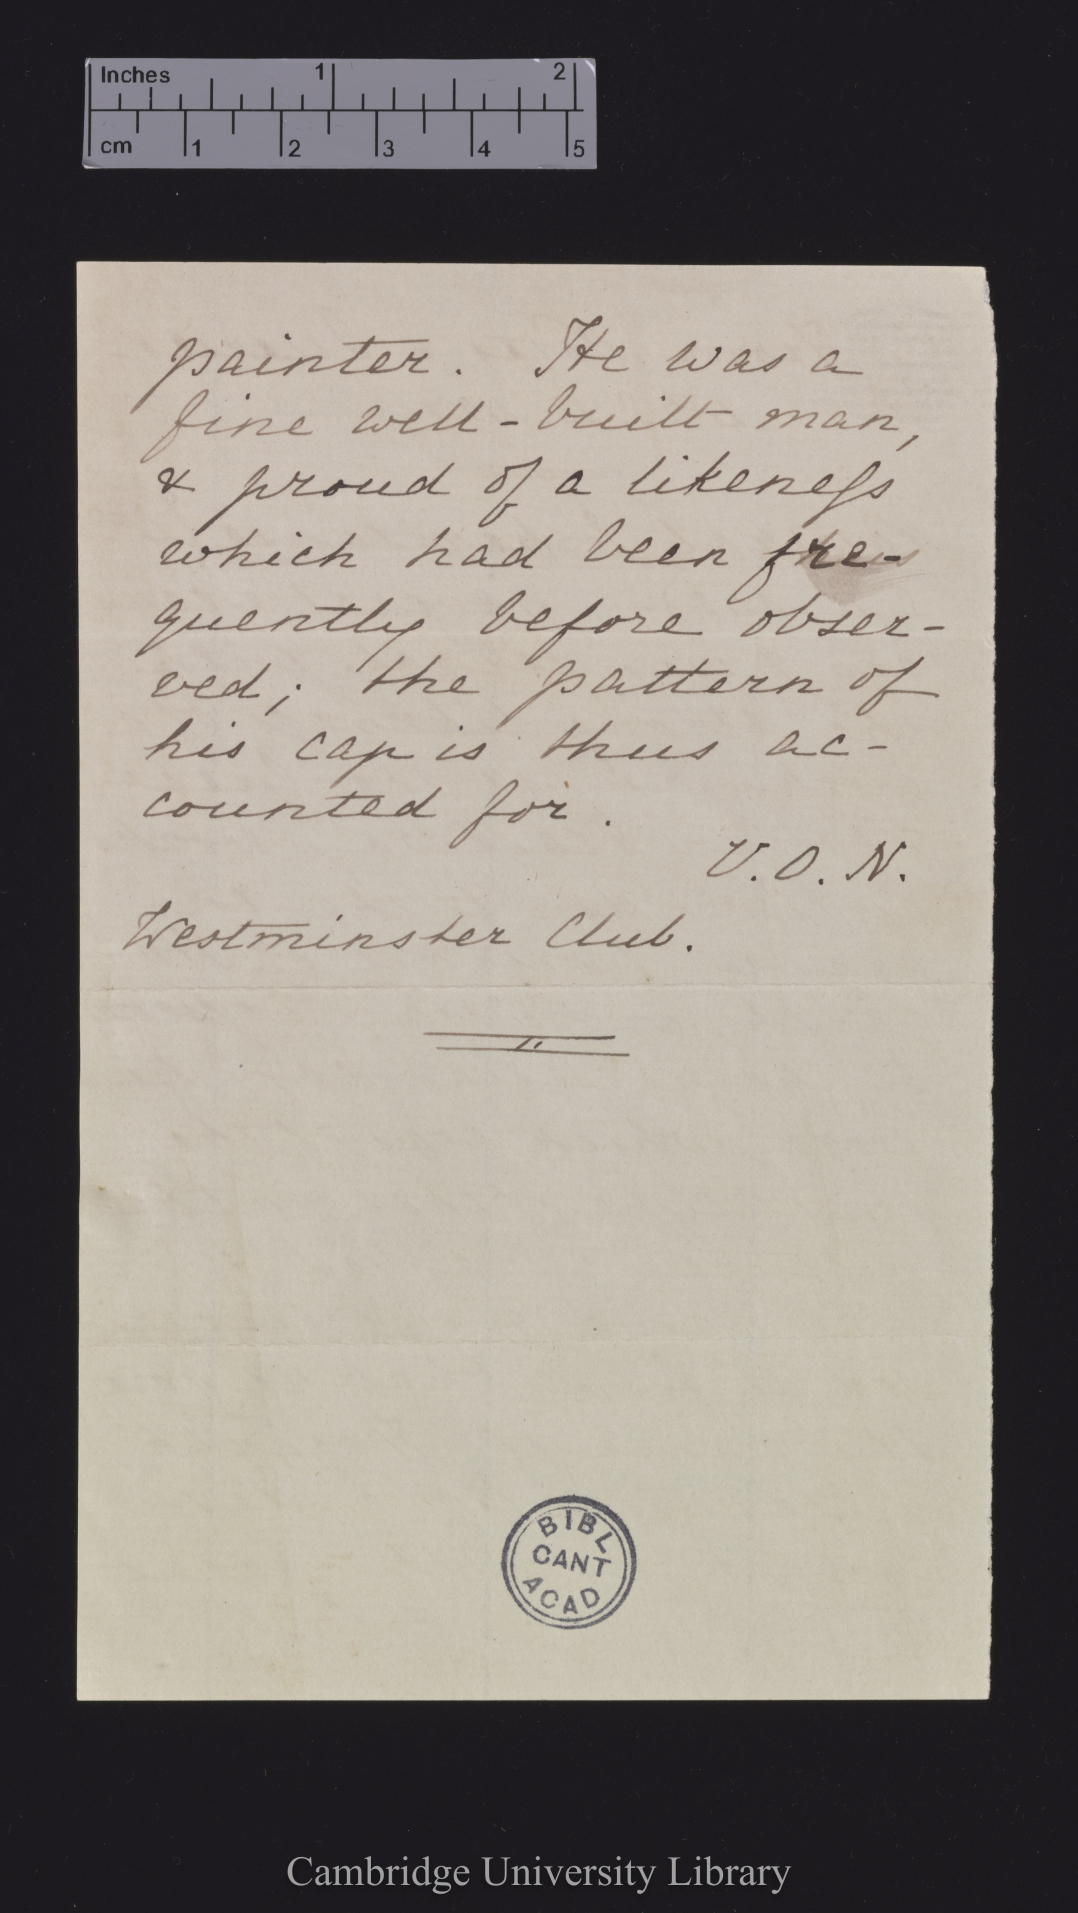 Inches 1 2
cm 1 2 3 4 5
painter. He was a
fine well-built man,
& proud of a likeneſs
which had been fre-
quently before obser-
ved; the pattern of
his cap is thus ac-
counted for.
V. O. N.
Westminster Club.
BIBL
CANT
ACAD
Cambridge University Library